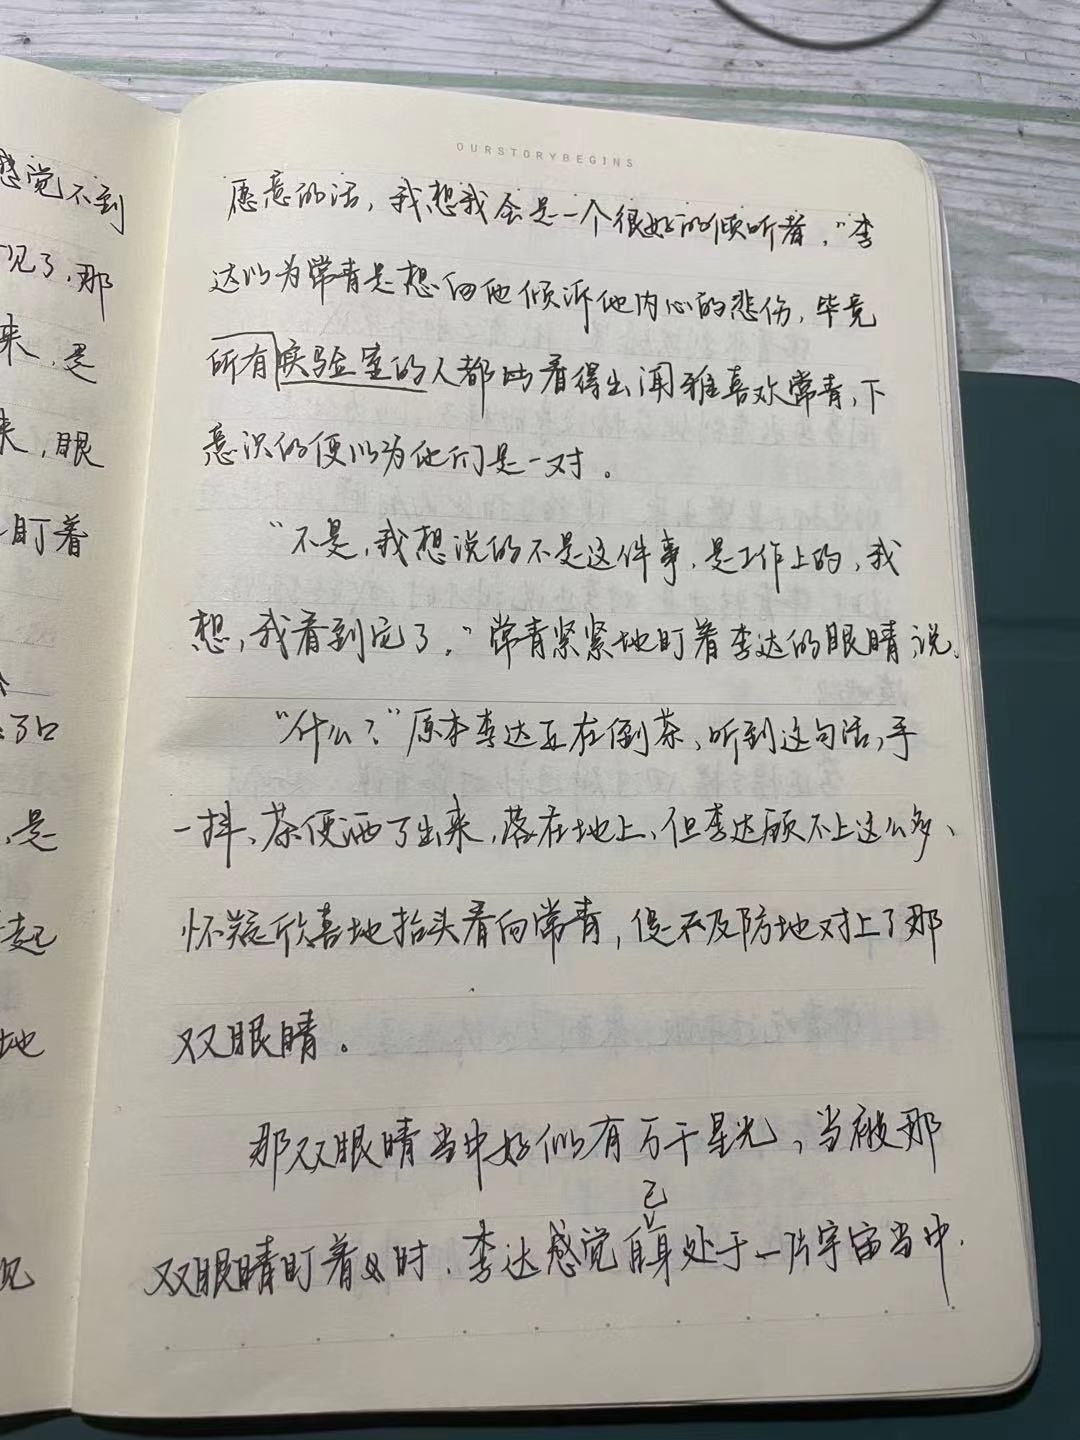 OURSTORYBEGINS
感觉不到
见了，那
来，是
来，眼
盯着
了口
，是
起
地
况
愿意的话，我想我会是一个很好的倾听者，"李
达以为常青是想向他倾诉他内心的悲伤，毕竟
所有实验室的人都看得出闻雅喜欢常青，下
意识的便以为他们是一对。
"不是，我想说的不是这件事，是工作上的，我
想，我看到它了，"常青紧紧地盯着李达的眼睛说，
"什么？"原本李达正在倒茶，听到这句话，手
一抖、茶便洒了出来，落在地上、但李达顾不上这么多、
怀疑欣喜地抬头看向常青，促不及防地对上了那
双眼睛。
那双眼睛当中好似有万千星光，当被那
双眼睛盯着时，李达感觉自己身处于一片宇宙当中，